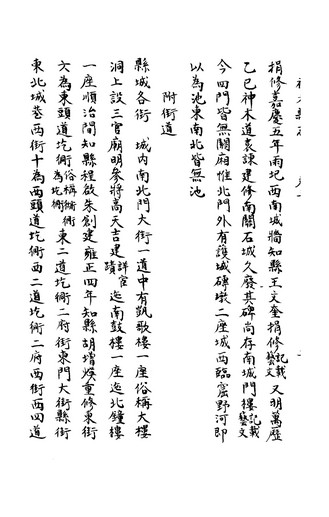 捐修嘉慶五年雨圮西南城牆知縣王文奎捐修記載藝文又明萬歷
乙巳神木道袁諫建修南關石城久廢其磚尚存南城門樓記載藝文
今四門皆無關廂惟北門外有護城磚墩二座城西臨窟野河即
以為池東南北皆無池
附街道
縣城各街 城内南北門大街一道中有凱歌樓一座俗稱大樓
洞上設三官廟明參將高天吉建詳宦蹟迤南鼓樓一座迤北鐘樓
一座順治間知縣程啟朱創建雍正四年知縣胡增煥重修東街
文為東頭道圪衕俗稱衚衕為圪衕東二道圪衕二府街東門大街縣街
東北城巷西街十為西頭道圪衕西二道圪衕二府西街西四道